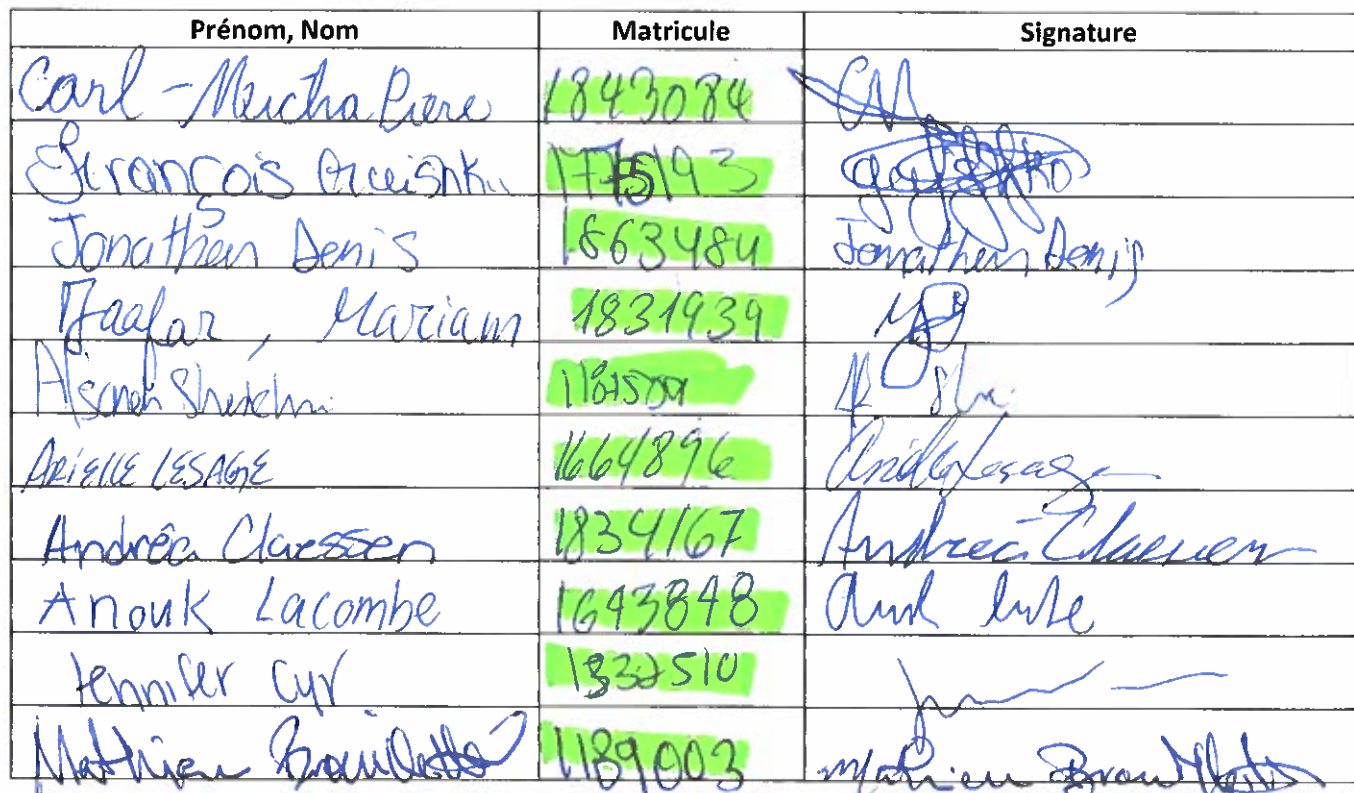 Prénom, Nom Matricule Signature
Carl-Mucha Piere 1843084
François 1775193
Jonathen Denis 1863484 Jonathen Denis
Jaafar, Mariam 1831939
ARIELLE LESAGE 1664896 Arielle Lesage
Andréa Claessen 1834167 Andréa Claessen
Anouk Lacombe 1643848
Jennifer Cyr 510
Mathieu Brouillette 1189003 Mathieu Brouillette